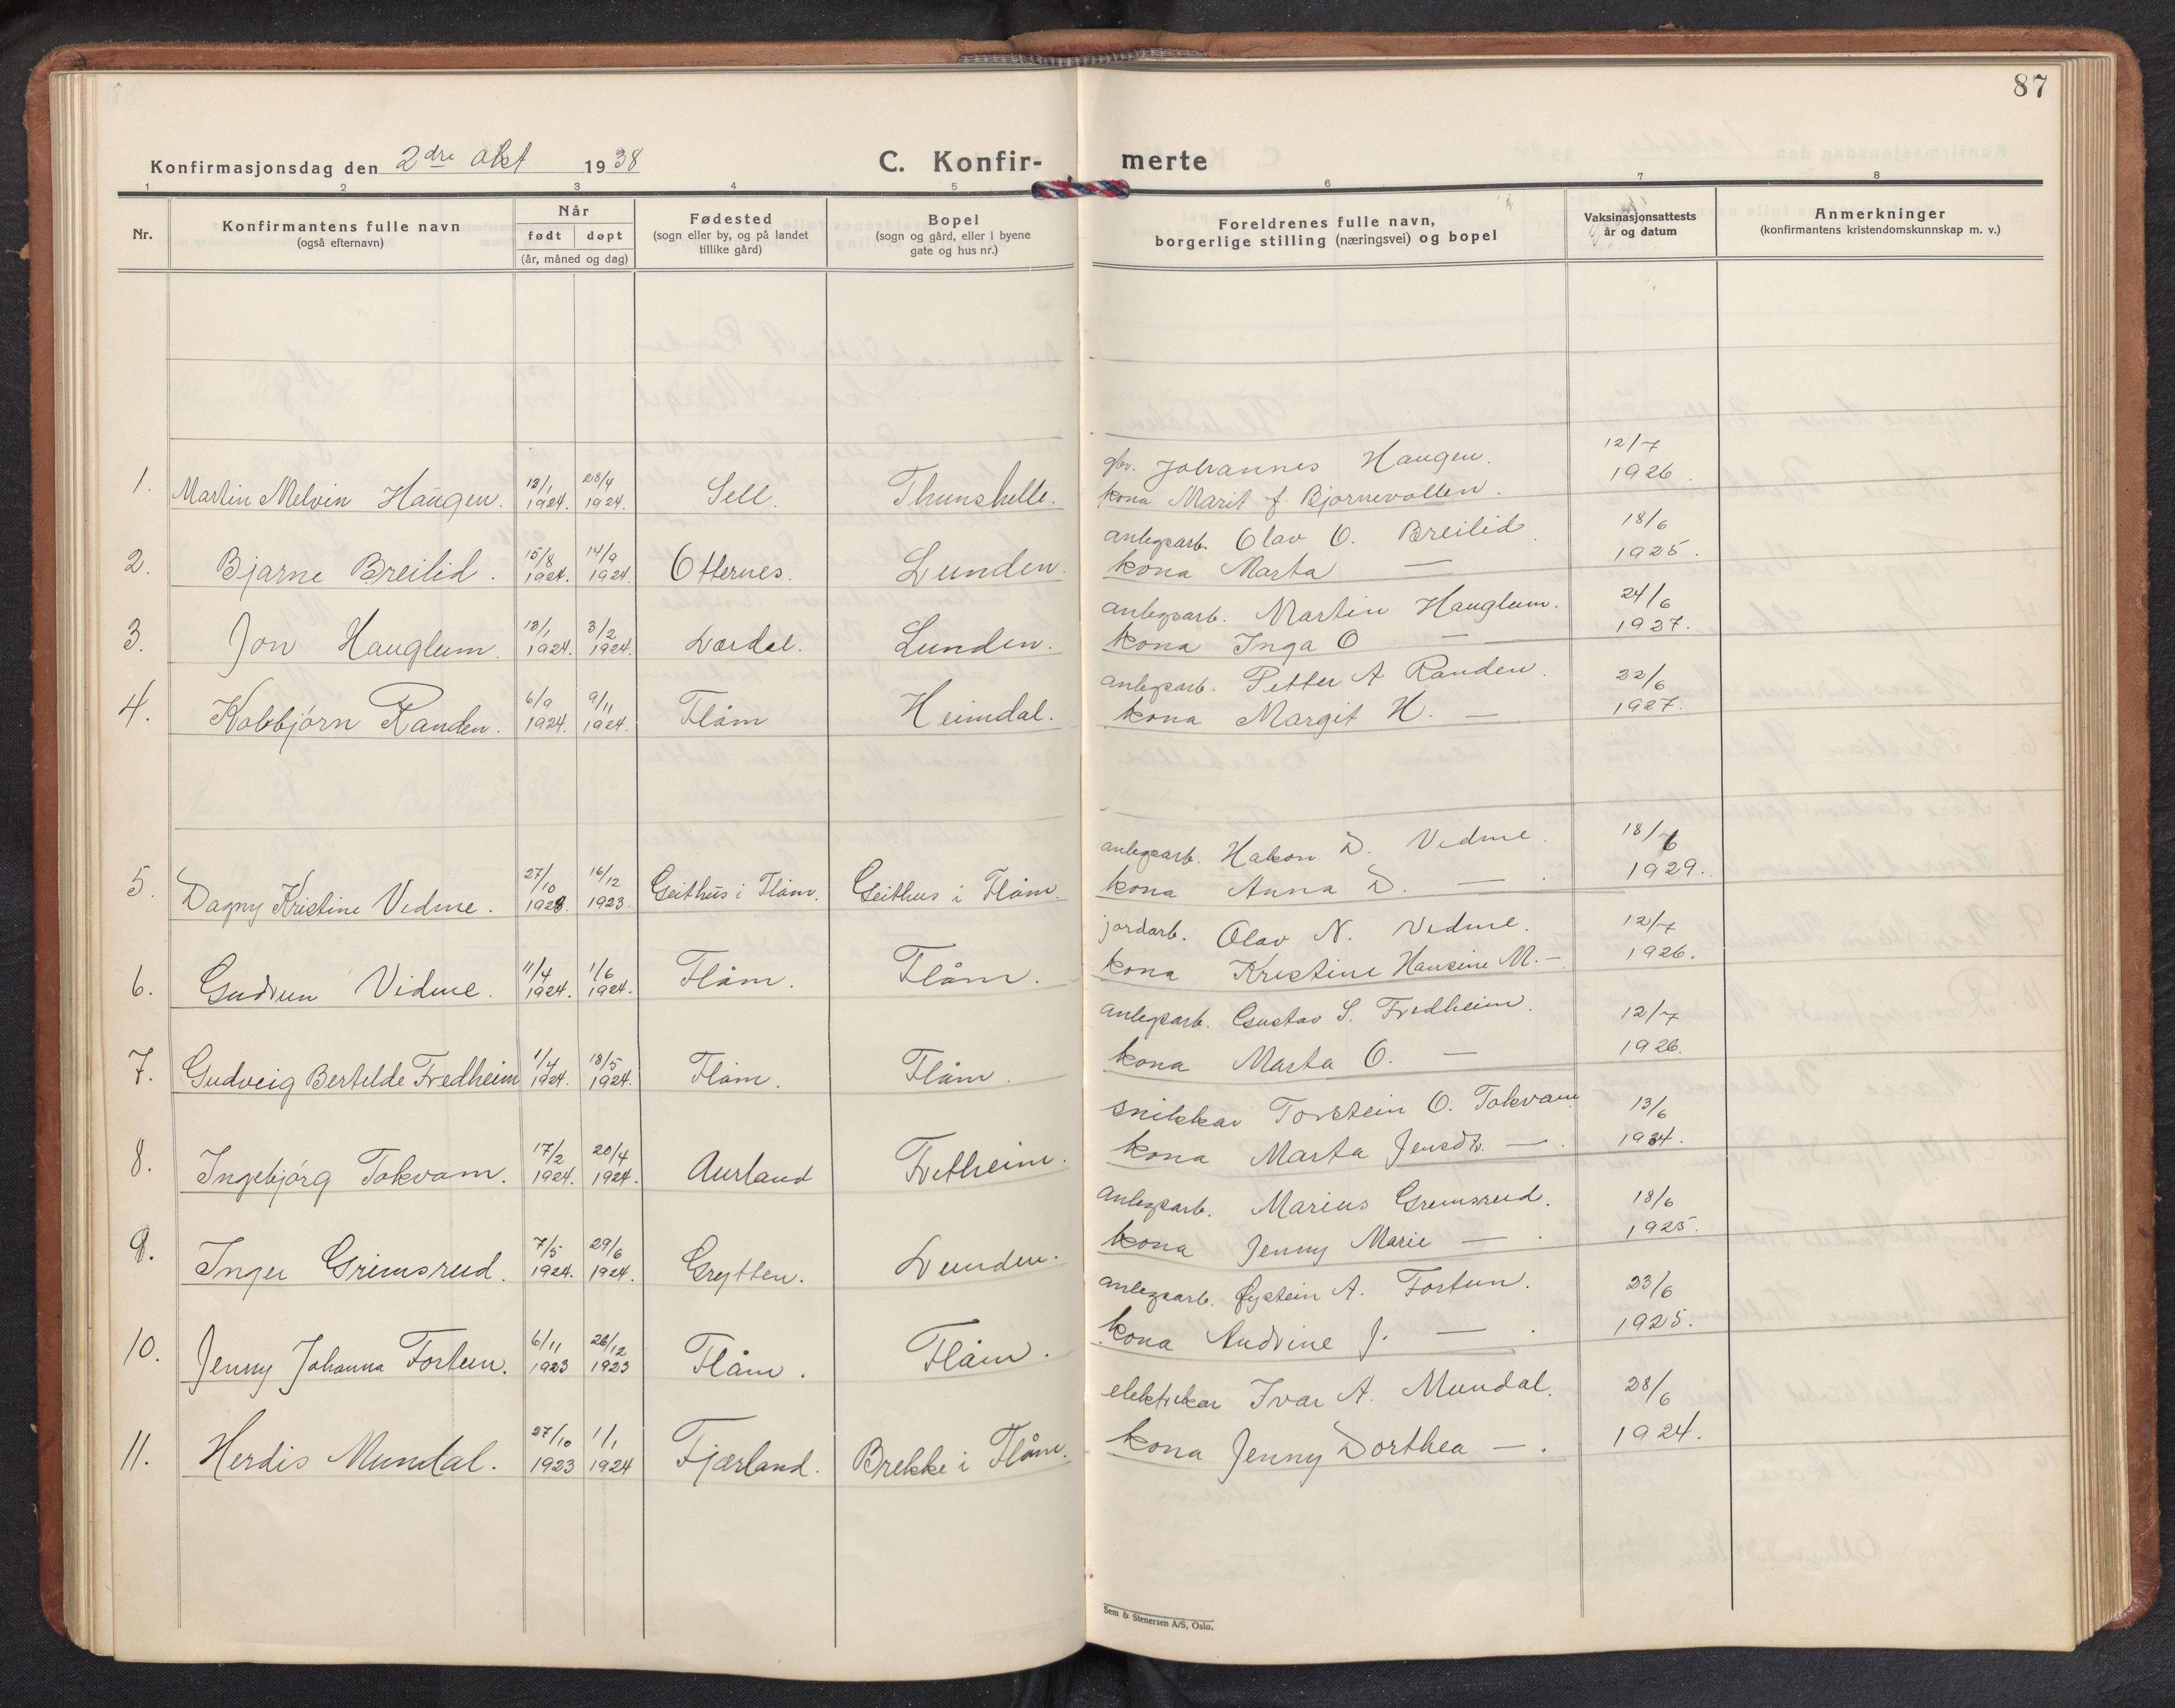 87
Konfirmasjonsdag den 2dre okt 1938
C. Konfir-
merte
1 2 3 4 5 6 7 8
Nr.
Konfirmantens fulle navn
(også efternavn)
Når
født døpt
(år, måned og dag)
Fødested
(sogn eller by, og på landet
tillike gård)
Bopel
(sogn og gård, eller i byene
gate og hus nr.)
Foreldrenes fulle navn,
borgerlige stilling (næringsvei) og bopel
Vaksinasjonsattests
år og datum
Anmerkninger
(konfirmantens kristendomskunnskap m. v.)
gbr. Johannes Haugen. 12/7
1. Martin Melvin Haugen. 18/1 1924. 28/4 1924. Sell. Thunshelle. kona Marit f. Bjørnevollen. 1926.
anlegsarb. Olav O. Breilid. 18/6
2. Bjarne Breilid. 15/8 1924. 14/9 1924. Otternes. Lunden. kona Marta — 1925.
anlegsarb. Martin Hauglum. 24/6
3. Jon Hauglum. 18/1 1924. 3/2 1924. Lærdal. Lunden. kona Inga O — 1927.
anlegsarb. Petter A Randen. 22/6
4. Kolbjørn Randen. 6/9 1924. 9/11 1924. Flåm Heimdal. kona Margit H. — 1927.
anlegsarb. Hakon D. Vedme. 18/6
5. Dagny Kristine Vidme. 27/10 1923. 16/12 1923 Geithus i Flåm. Geithus i Flåm. kona Anna D. — . 1929.
jordarb. Olav N. Vidme. 12/7
6. Gudrun Vidme. 11/4 1924. 1/6 1924. Flåm. Flåm. kona Kristine Hansine M. — 1926.
anlegsarb. Gustav S. Fredheim. 12/7
7. Gudveig Bertelde Fredheim 1/4 1924. 18/5 1924. Flåm. Flåm. kona Marta O. — 1926.
snikkar Torstein O. Tokvam 13/6
8. Ingebjørg Tokvam. 17/2 1924. 20/4 1924. Aurland Fretheim. kona Marta Jensdtr. — . 1934.
anlegsarb. Marius Grimsrud. 18/6
9. Inger Grimsrud. 7/5 1924. 29/6 1924. Grytten. Lunden. kona Jenny Marie — . 1925.
anlegsarb. Øystein A. Fortun. 23/6
10. Jenny Johanna Fortun. 6/11 1923 26/12 1923 Flåm. Flåm. kona Andrine J. — . 1925.
elektrikar Ivar A. Mundal. 28/6
11. Herdis Mundal. 27/10 1923 1/1 1924 Fjærland. Brekke i Flåm. kona Jenny Dorthea — . 1924.
Sem & Stenersen A/S, Oslo.